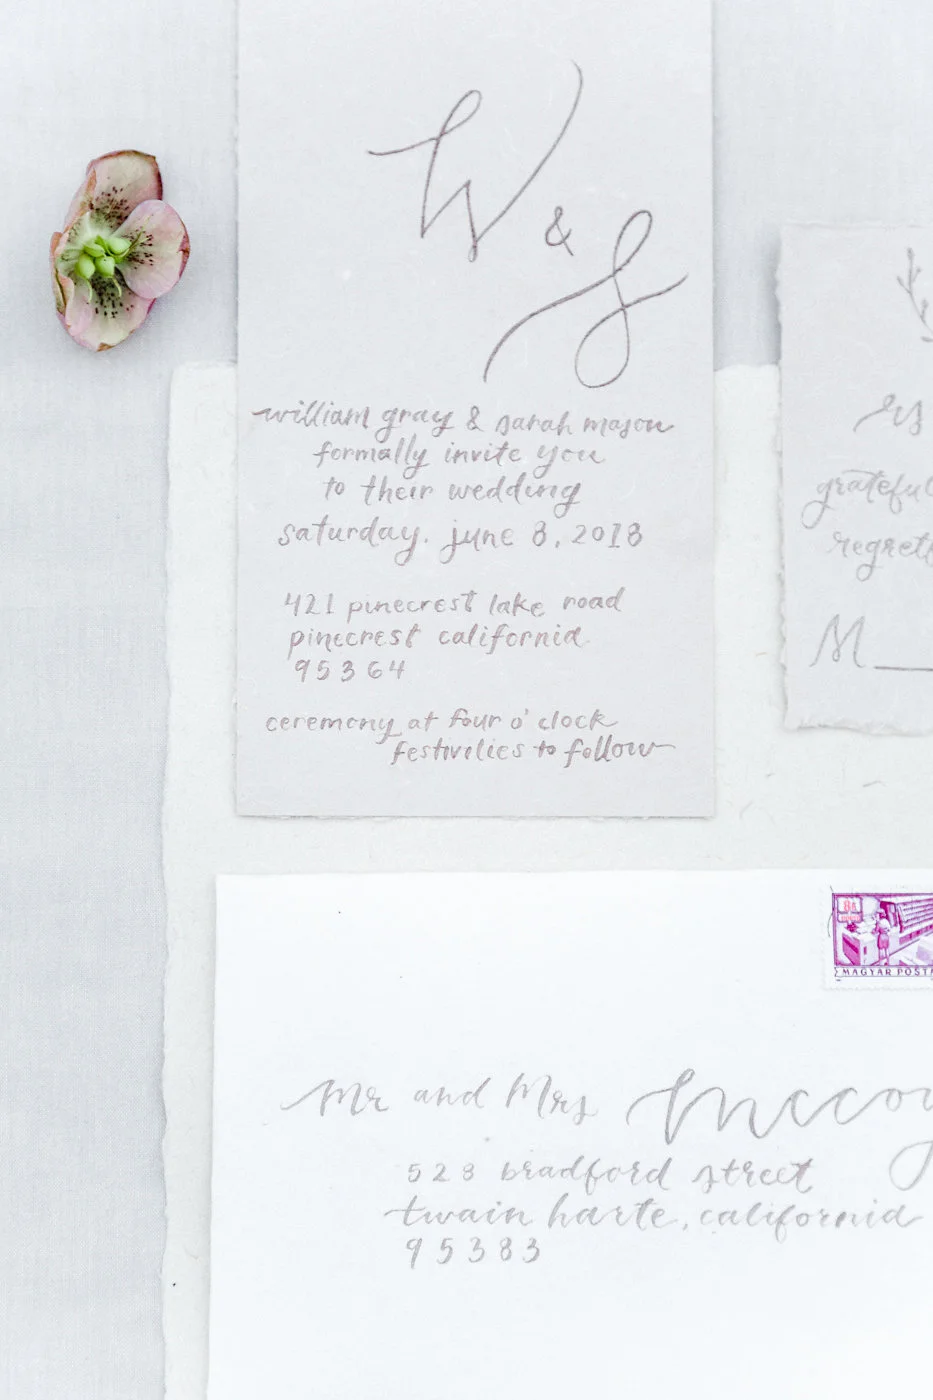 W & S
william gray & sarah mason
formally invite you
to their wedding
saturday. june 8, 2018
421 pinecrest lake road
pinecrest california
95364
ceremony at four o'clock
festivities to follow
rs
grateful
regret
M
MAGYAR POSTA
Mr and Mrs Mccoy
528 bradford street
twain harte, california
95383